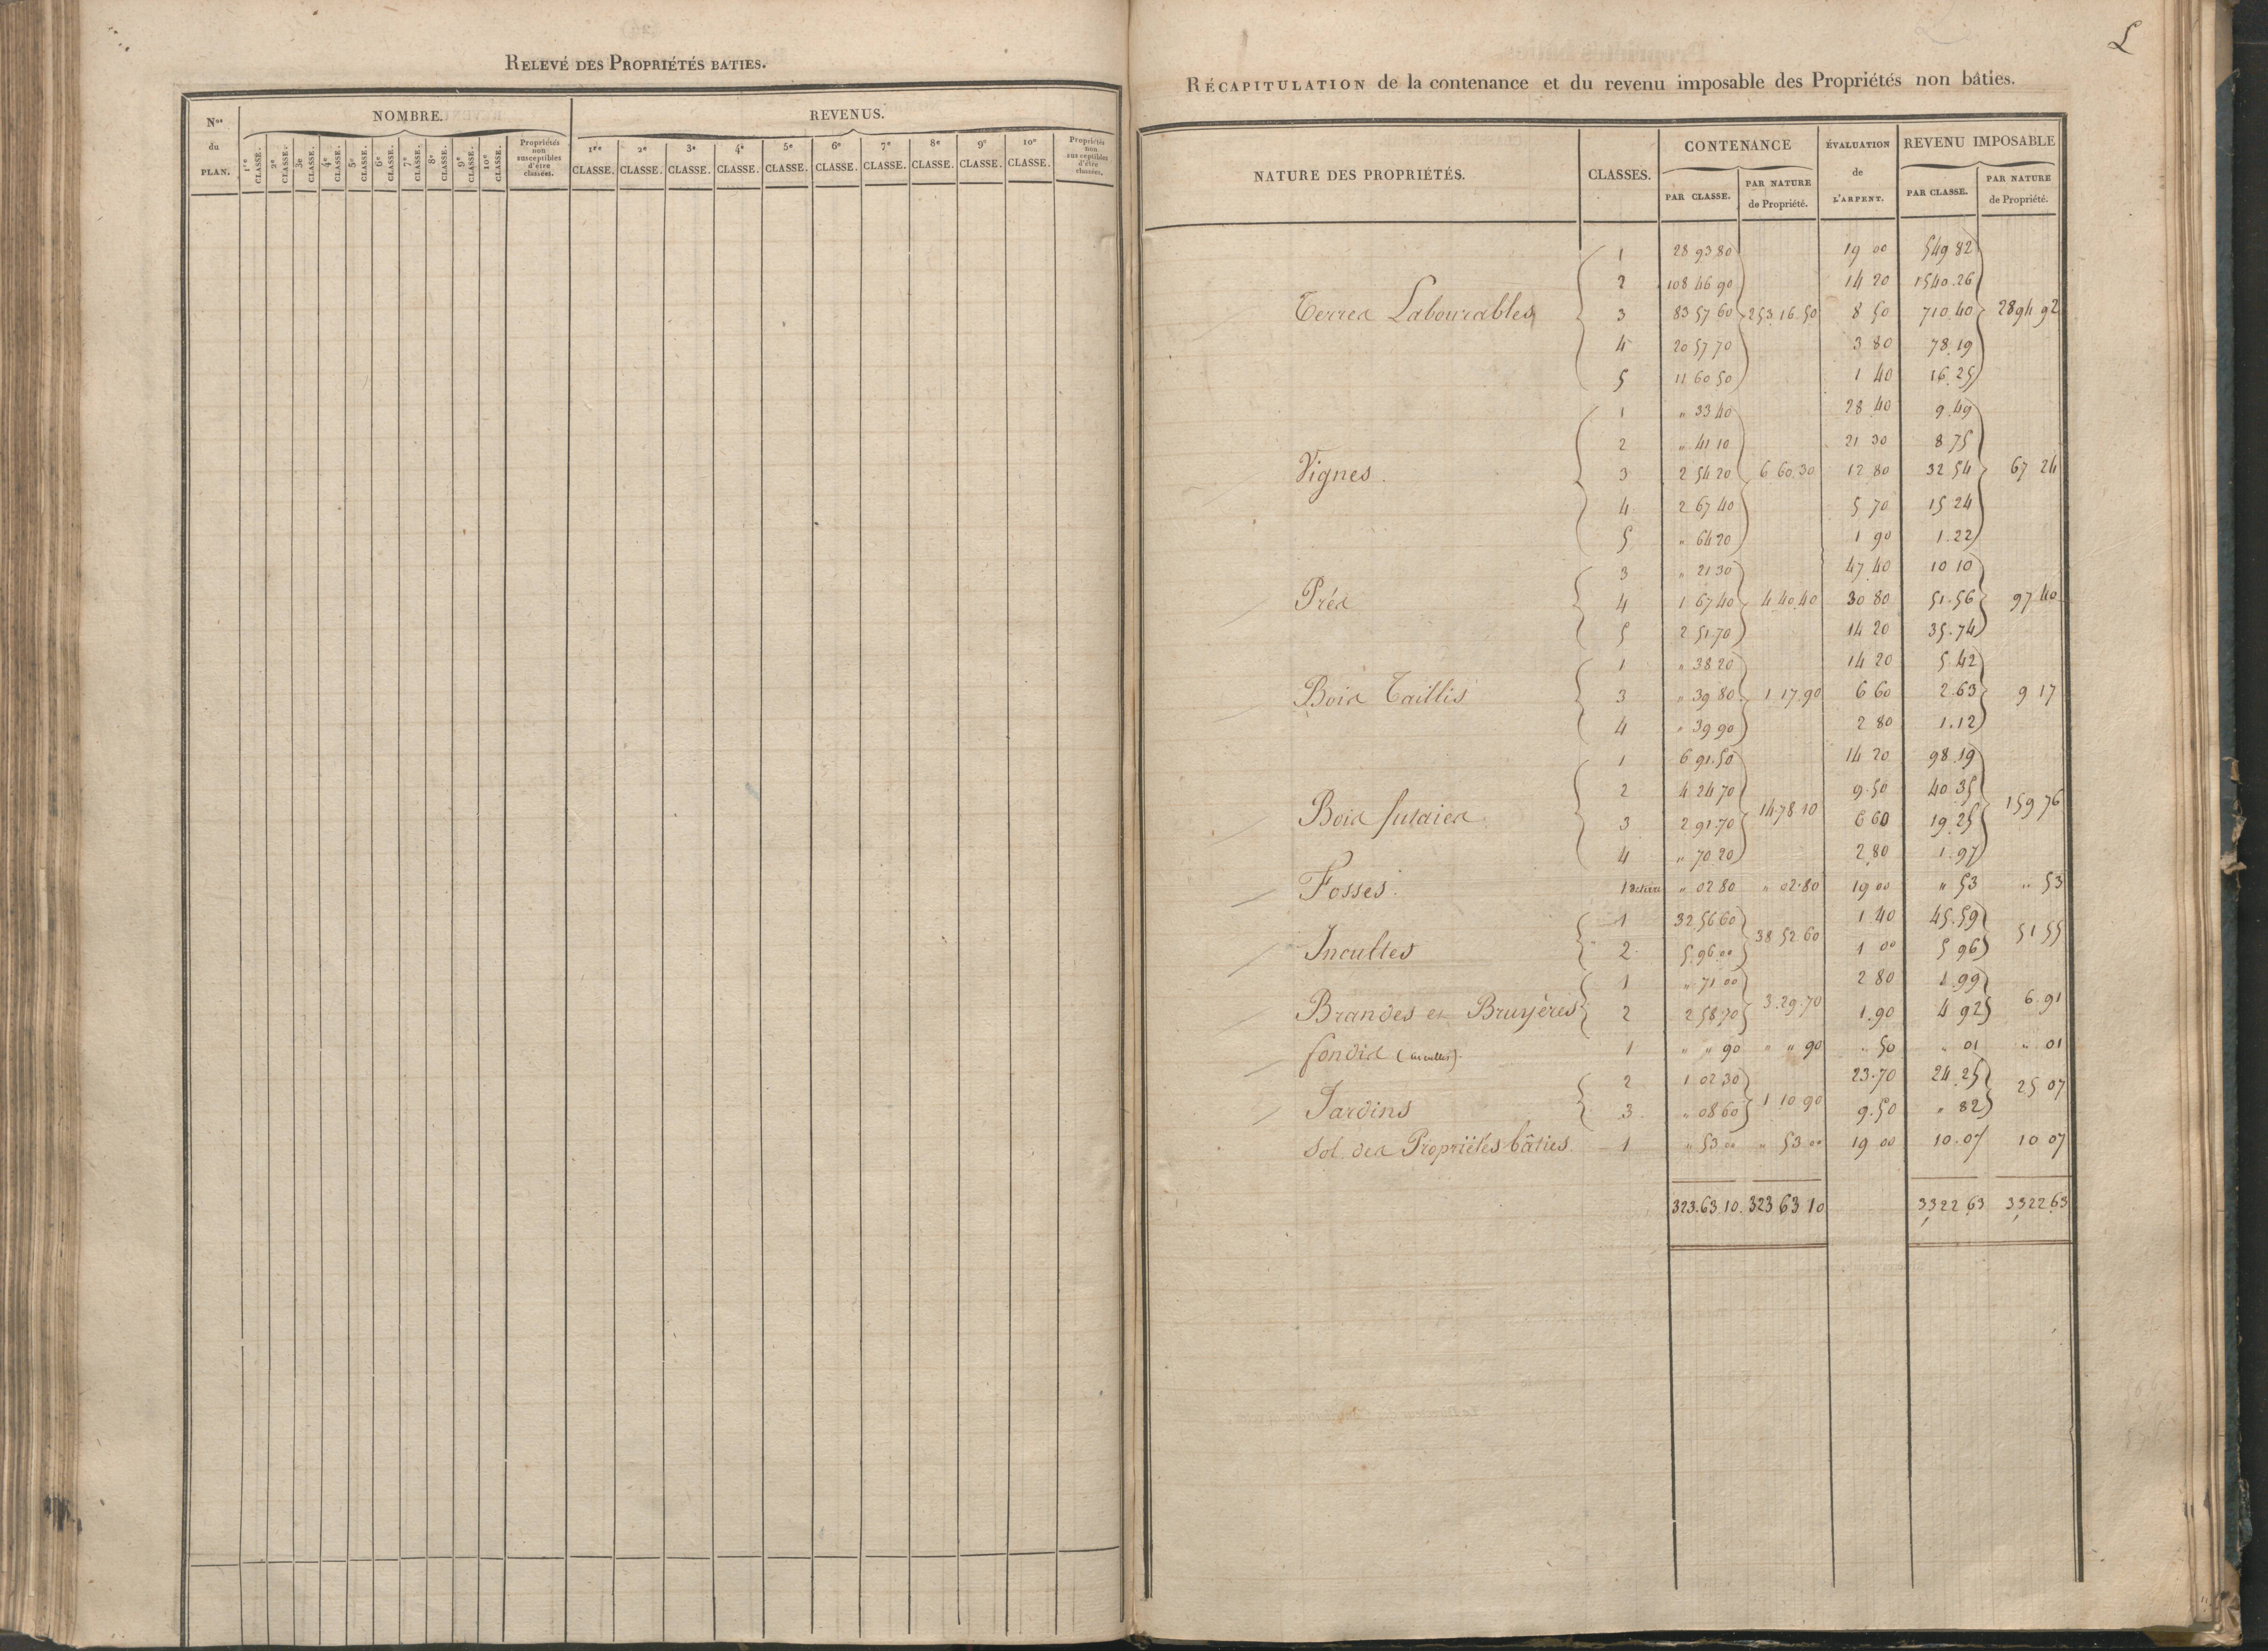 RELEVÉ DES PROPRIÉTÉS BATIES.
Nos du PLAN.
NOMBRE.
REVENUS.
1re CLASSE. 2e CLASSE. 3e CLASSE. 4e CLASSE. 5e CLASSE. 6e CLASSE. 7e CLASSE. 8e CLASSE. 9e CLASSE. 10e CLASSE. Propriétés non susceptibles d'être classées.
1re CLASSE. 2e CLASSE. 3e CLASSE. 4e CLASSE. 5e CLASSE. 6e CLASSE. 7e CLASSE. 8e CLASSE. 9e CLASSE. 10e CLASSE. Propriétés non susceptibles d'être classées.
L
RÉCAPITULATION de la contenance et du revenu imposable des Propriétés non bâties.
NATURE DES PROPRIÉTÉS. CLASSES. CONTENANCE ÉVALUATION de L'ARPENT. REVENU IMPOSABLE
PAR CLASSE. PAR NATURE de Propriété. PAR CLASSE. PAR NATURE de Propriété.
1 28 93 80 19 00 549 82
2 108 46 90 14 20 1540.26
Terres Labourables 3 83 57 60 253.16.50 8 50 710.40 2894 92
4 20 57 70 3 80 78.19
5 11 60 50 1 40 16.25
1 " 33 40 28 40 9.49
2 " 41 10 21 30 8 75
Vignes. 3 2 54 20 6 60.30 12 80 32 54 67 24
4 2 67 40 5 70 15 24
5 " 64 20 1 90 1.22
3 " 21 30 47 40 10 10
Prés 4 1 67 40 4 40.40 30 80 51.56 97.40
5 2 51.70 14 20 35.74
1 " 38 20 14 20 5.42
Bois Taillis 3 " 39 80 1 17.90 6 60 2.63 9 17
4 " 39 90 2 80 1.12
1 6 91.50 14 20 98.19
2 4 24 70 9.50 40.35
Bois futaies 3 2 91.70 14 78 10 6 60 19.25 159 76
4 " 70 20 2 80 1.97
Fosses. 1 " 02 80 " 02.80 19 00 " 53 " 53
1 32.56 60 1 40 45.59
Incultes 2 5.96.00 38 52 60 1 00 5 96 51 55
1 " 71 00 2 80 1.99
Brandes et Bruyères 2 2 58.70 3.29.70 1.90 4 92 6.91
fondis (incultes). 1 " " 90 " " 90 " 50 " 01 " 01
2 1 02.30 23.70 24.25
Jardins 3 " 08 60 1 10 90 9.50 " 82 25 07
Sol des Propriétés bâties. 1 " 53 00 " 53 00 19 00 10.07 10 07
323.63.10. 323 63 10 3322 63 3322 63